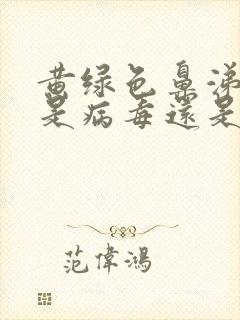 黄绿色鼻涕
是病毒還是
范偉鴻